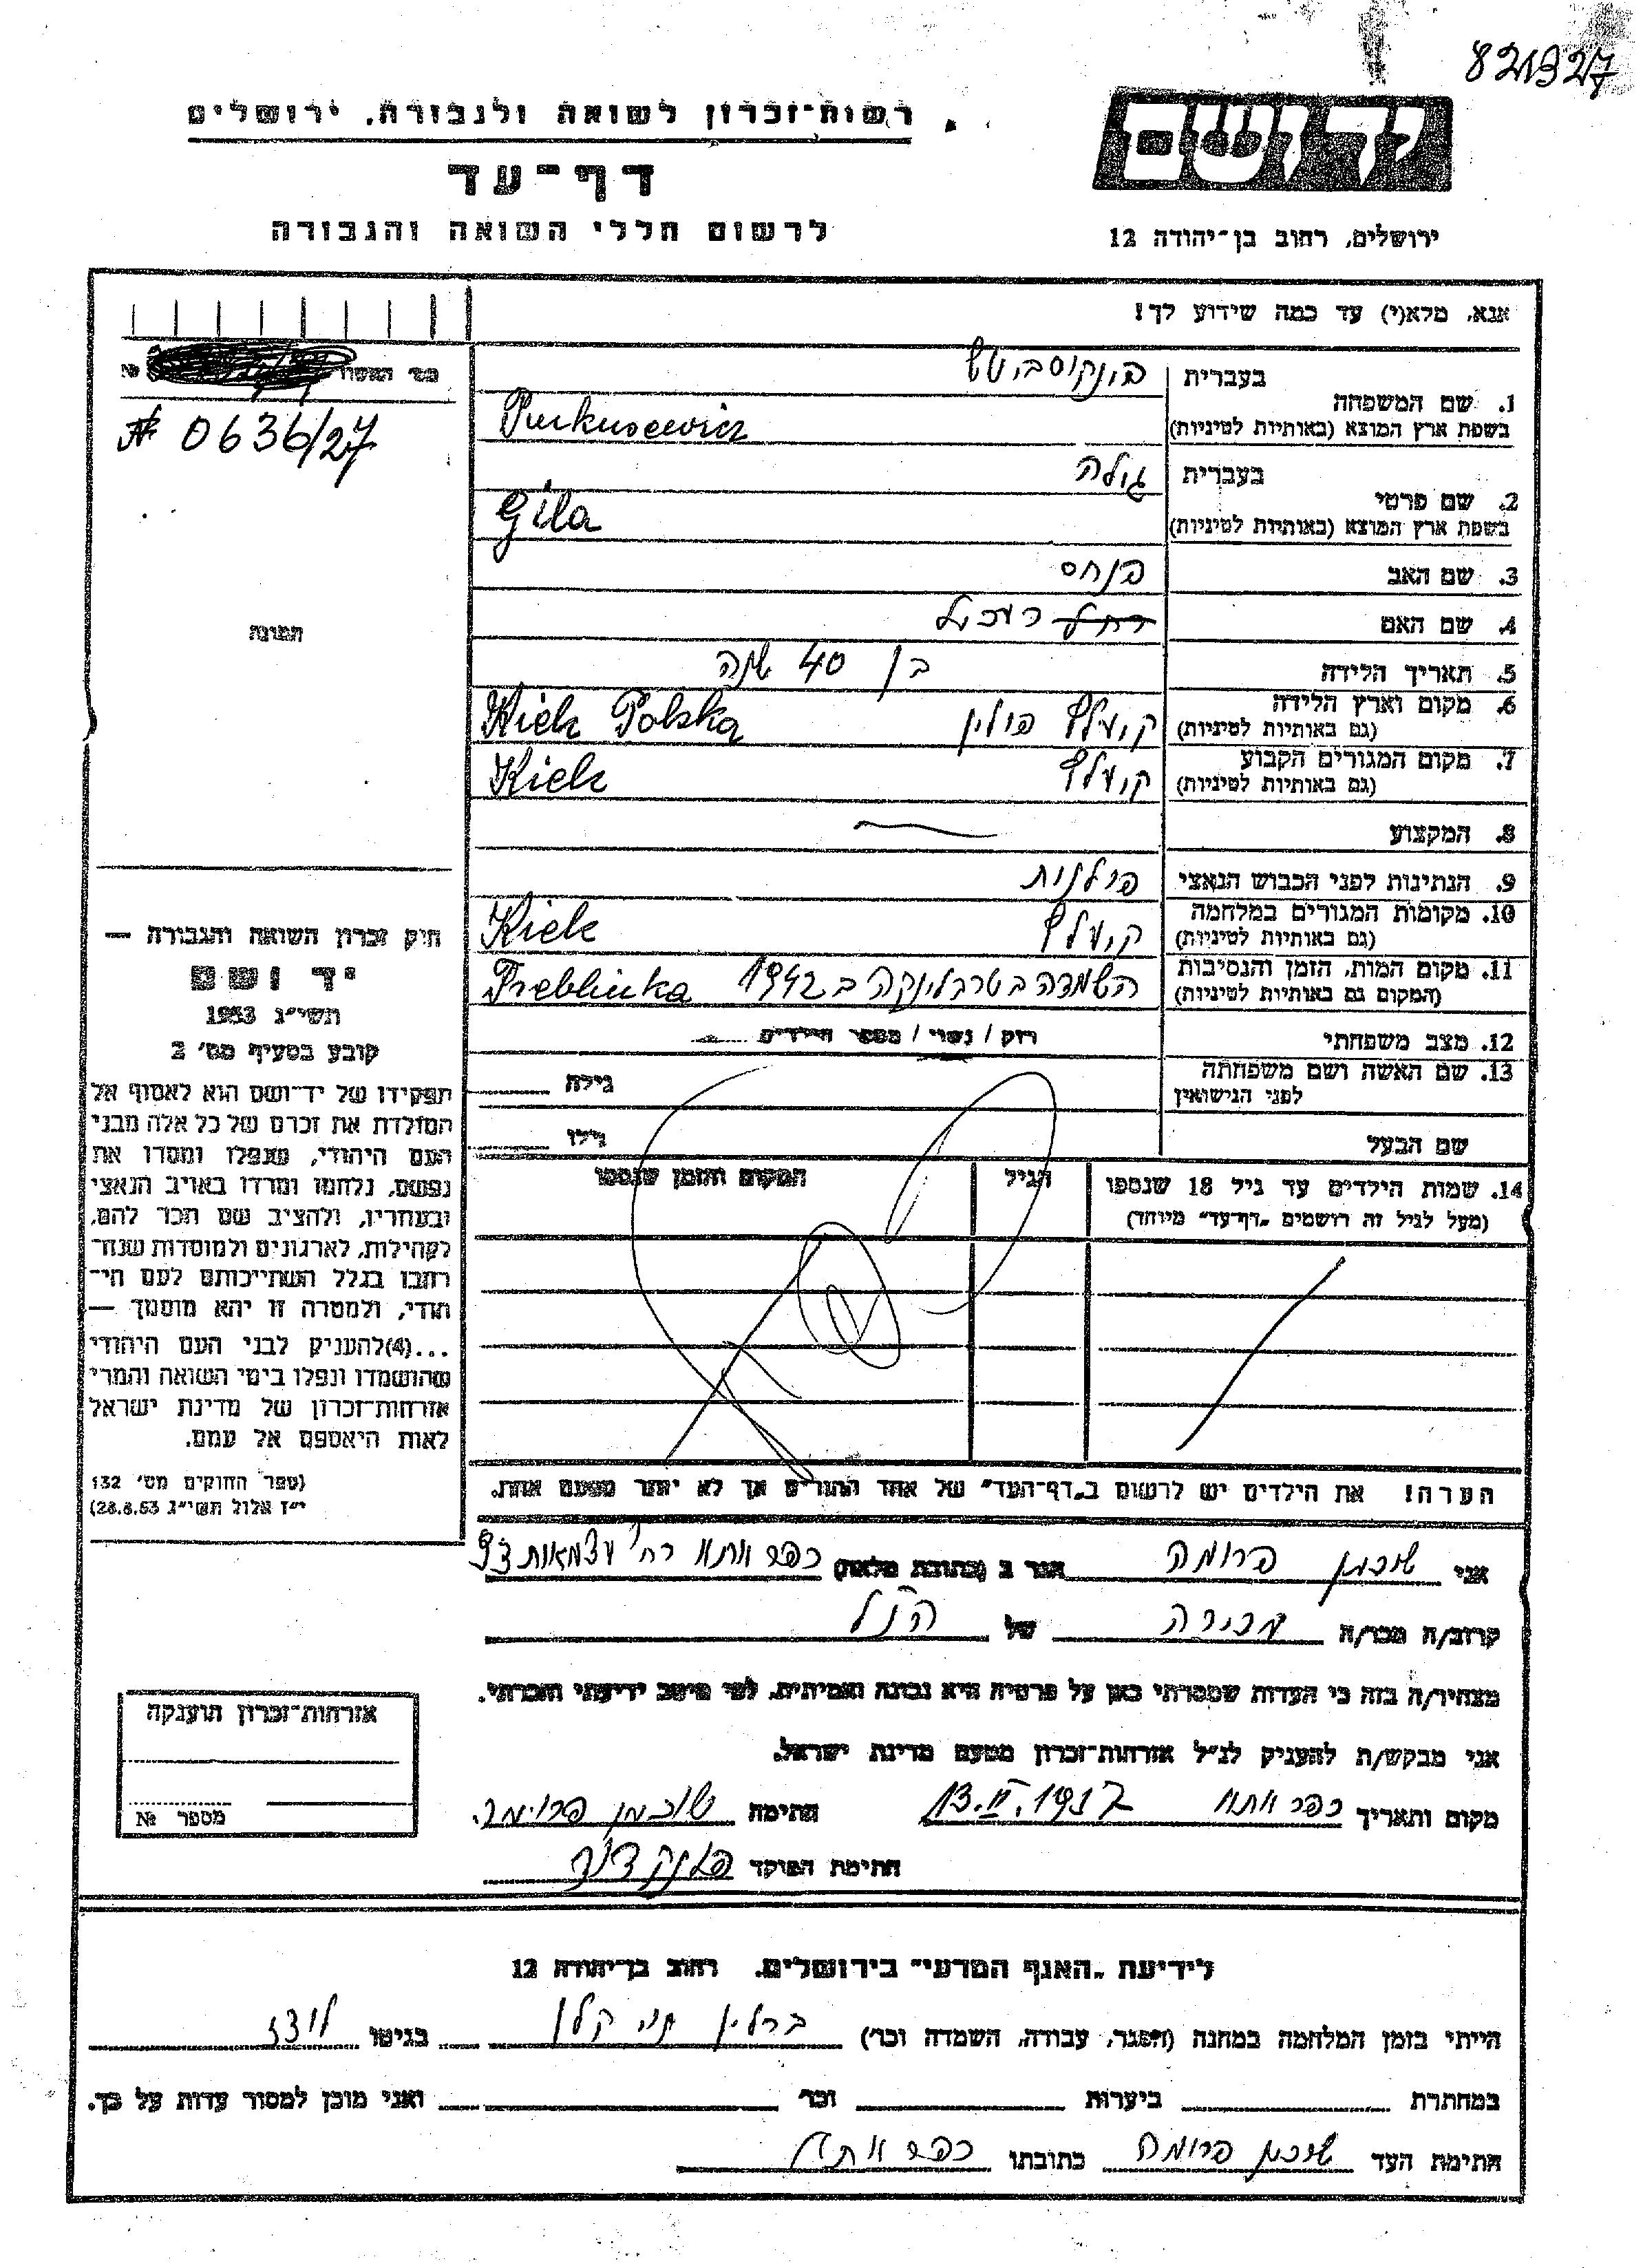 821927
רשות-זכרון לשואה ולגבורה, ירושלים
יד ושם
דף-עד
לרשום חללי השואה והגבורה
ירושלים, רחוב בן-יהודה 12
אנא, מלא(י) עד כמה שידוע לך!
№
# 0636/27
תמונה
1. שם המשפחה
בעברית פינקוסביטש
בשפת ארץ המוצא (באותיות לטיניות)
2. שם פרטי
בעברית גילה
בשפת ארץ המוצא (באותיות לטיניות) Gila
3. שם האב פנחס
4. שם האם רחל
5. תאריך הלידה בן 40 שנה
6. מקום וארץ הלידה קיעלץ פולין Kielc Polska
(גם באותיות לטיניות)
7. מקום המגורים הקבוע קיעלץ Kielc
(גם באותיות לטיניות)
8. המקצוע
9. הנתינות לפני הכבוש הנאצי פולנית
10. מקומות המגורים במלחמה קיעלץ Kielc
(גם באותיות לטיניות)
11. מקום המות, הזמן והנסיבות השמדה בטרבלינקה ב 1942 Treblinka
(המקום גם באותיות לטיניות)
12. מצב משפחתי רווק / נשוי / מספר הילדים
13. שם האשה ושם משפחתה
לפני הנישואין
גילה
שם הבעל גילו
14. שמות הילדים עד גיל 18 שנספו הגיל המקום והזמן שנספו
(מעל לגיל זה רושמים "דף-עד" מיוחד)
הערה! את הילדים יש לרשום ב"דף-העד" של אחד ההורים אך לא יותר מפעם אחת.
חוק זכרון השואה והגבורה —
יד ושם
תשי"ג 1953
קובע בסעיף מס' 2
תפקידו של יד-ושם הוא לאסוף אל
המולדת את זכרם של כל אלה מבני
העם היהודי, שנפלו ומסרו את
נפשם, נלחמו ומרדו באויב הנאצי
ובעוזריו, ולהציב שם וזכר להם,
לקהילות, לארגונים ולמוסדות שנח-
רבו בגלל השתייכותם לעם הי-
הודי, ולמטרה זו יהא מוסמך —
...(4) להעניק לבני העם היהודי
שהושמדו ונפלו בימי השואה והמרי
אזרחות-זכרון של מדינת ישראל
לאות היאספם אל עמם.
(ספר החוקים מס' 132
י"ז אלול תשי"ג 28.8.53)
אני פרומה הגר ב (כתובת מלאה) כפר אתא רח' עצמאות
קרוב/ה מכר/ה מכירה של הנ"ל
מצהיר/ה בזה כי העדות שמסרתי כאן על פרטיה היא נכונה ואמיתית, לפי מיטב ידיעתי והכרתי.
אני מבקש/ת להעניק לנ"ל אזרחות-זכרון מטעם מדינת ישראל.
מקום ותאריך כפר אתא 13.II.1957 חתימה
חתימת הפוקד
אזרחות-זכרון הוענקה
מספר №
לידיעת "האגף המדעי" בירושלים. רחוב בן-יהודה 12
הייתי בזמן המלחמה במחנה (הסגר, עבודה, השמדה וכו') ברלין בגיטו לודז
במחתרת ביערות וכו' ואני מוכן למסור עדות על כך.
חתימת העד פרומה כתובתו כפר אתא